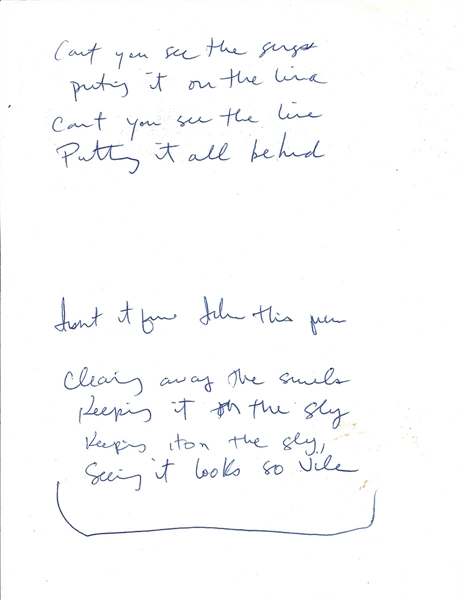 Cant you see the
puting it on the line
Cant you see the line
Putting it all behind
it this
Clearing away the smels
Keeping it on the sly
Keeping it on the sly,
Seeing it looks so vile